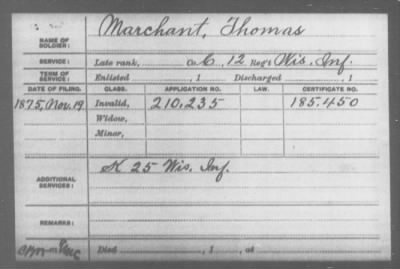 NAME OF SOLDIER: Marchant, Thomas
SERVICE: Late rank, Co. C, 12 Reg't Wis. Inf.
TERM OF SERVICE: Enlisted , 1 Discharged , 1
DATE OF FILING. CLASS. APPLICATION NO. LAW. CERTIFICATE NO.
1875, Nov. 19 Invalid, 210,235 185,450
Widow,
Minor,
ADDITIONAL SERVICES: K 25 Wis. Inf.
REMARKS:
Died , 1 , at